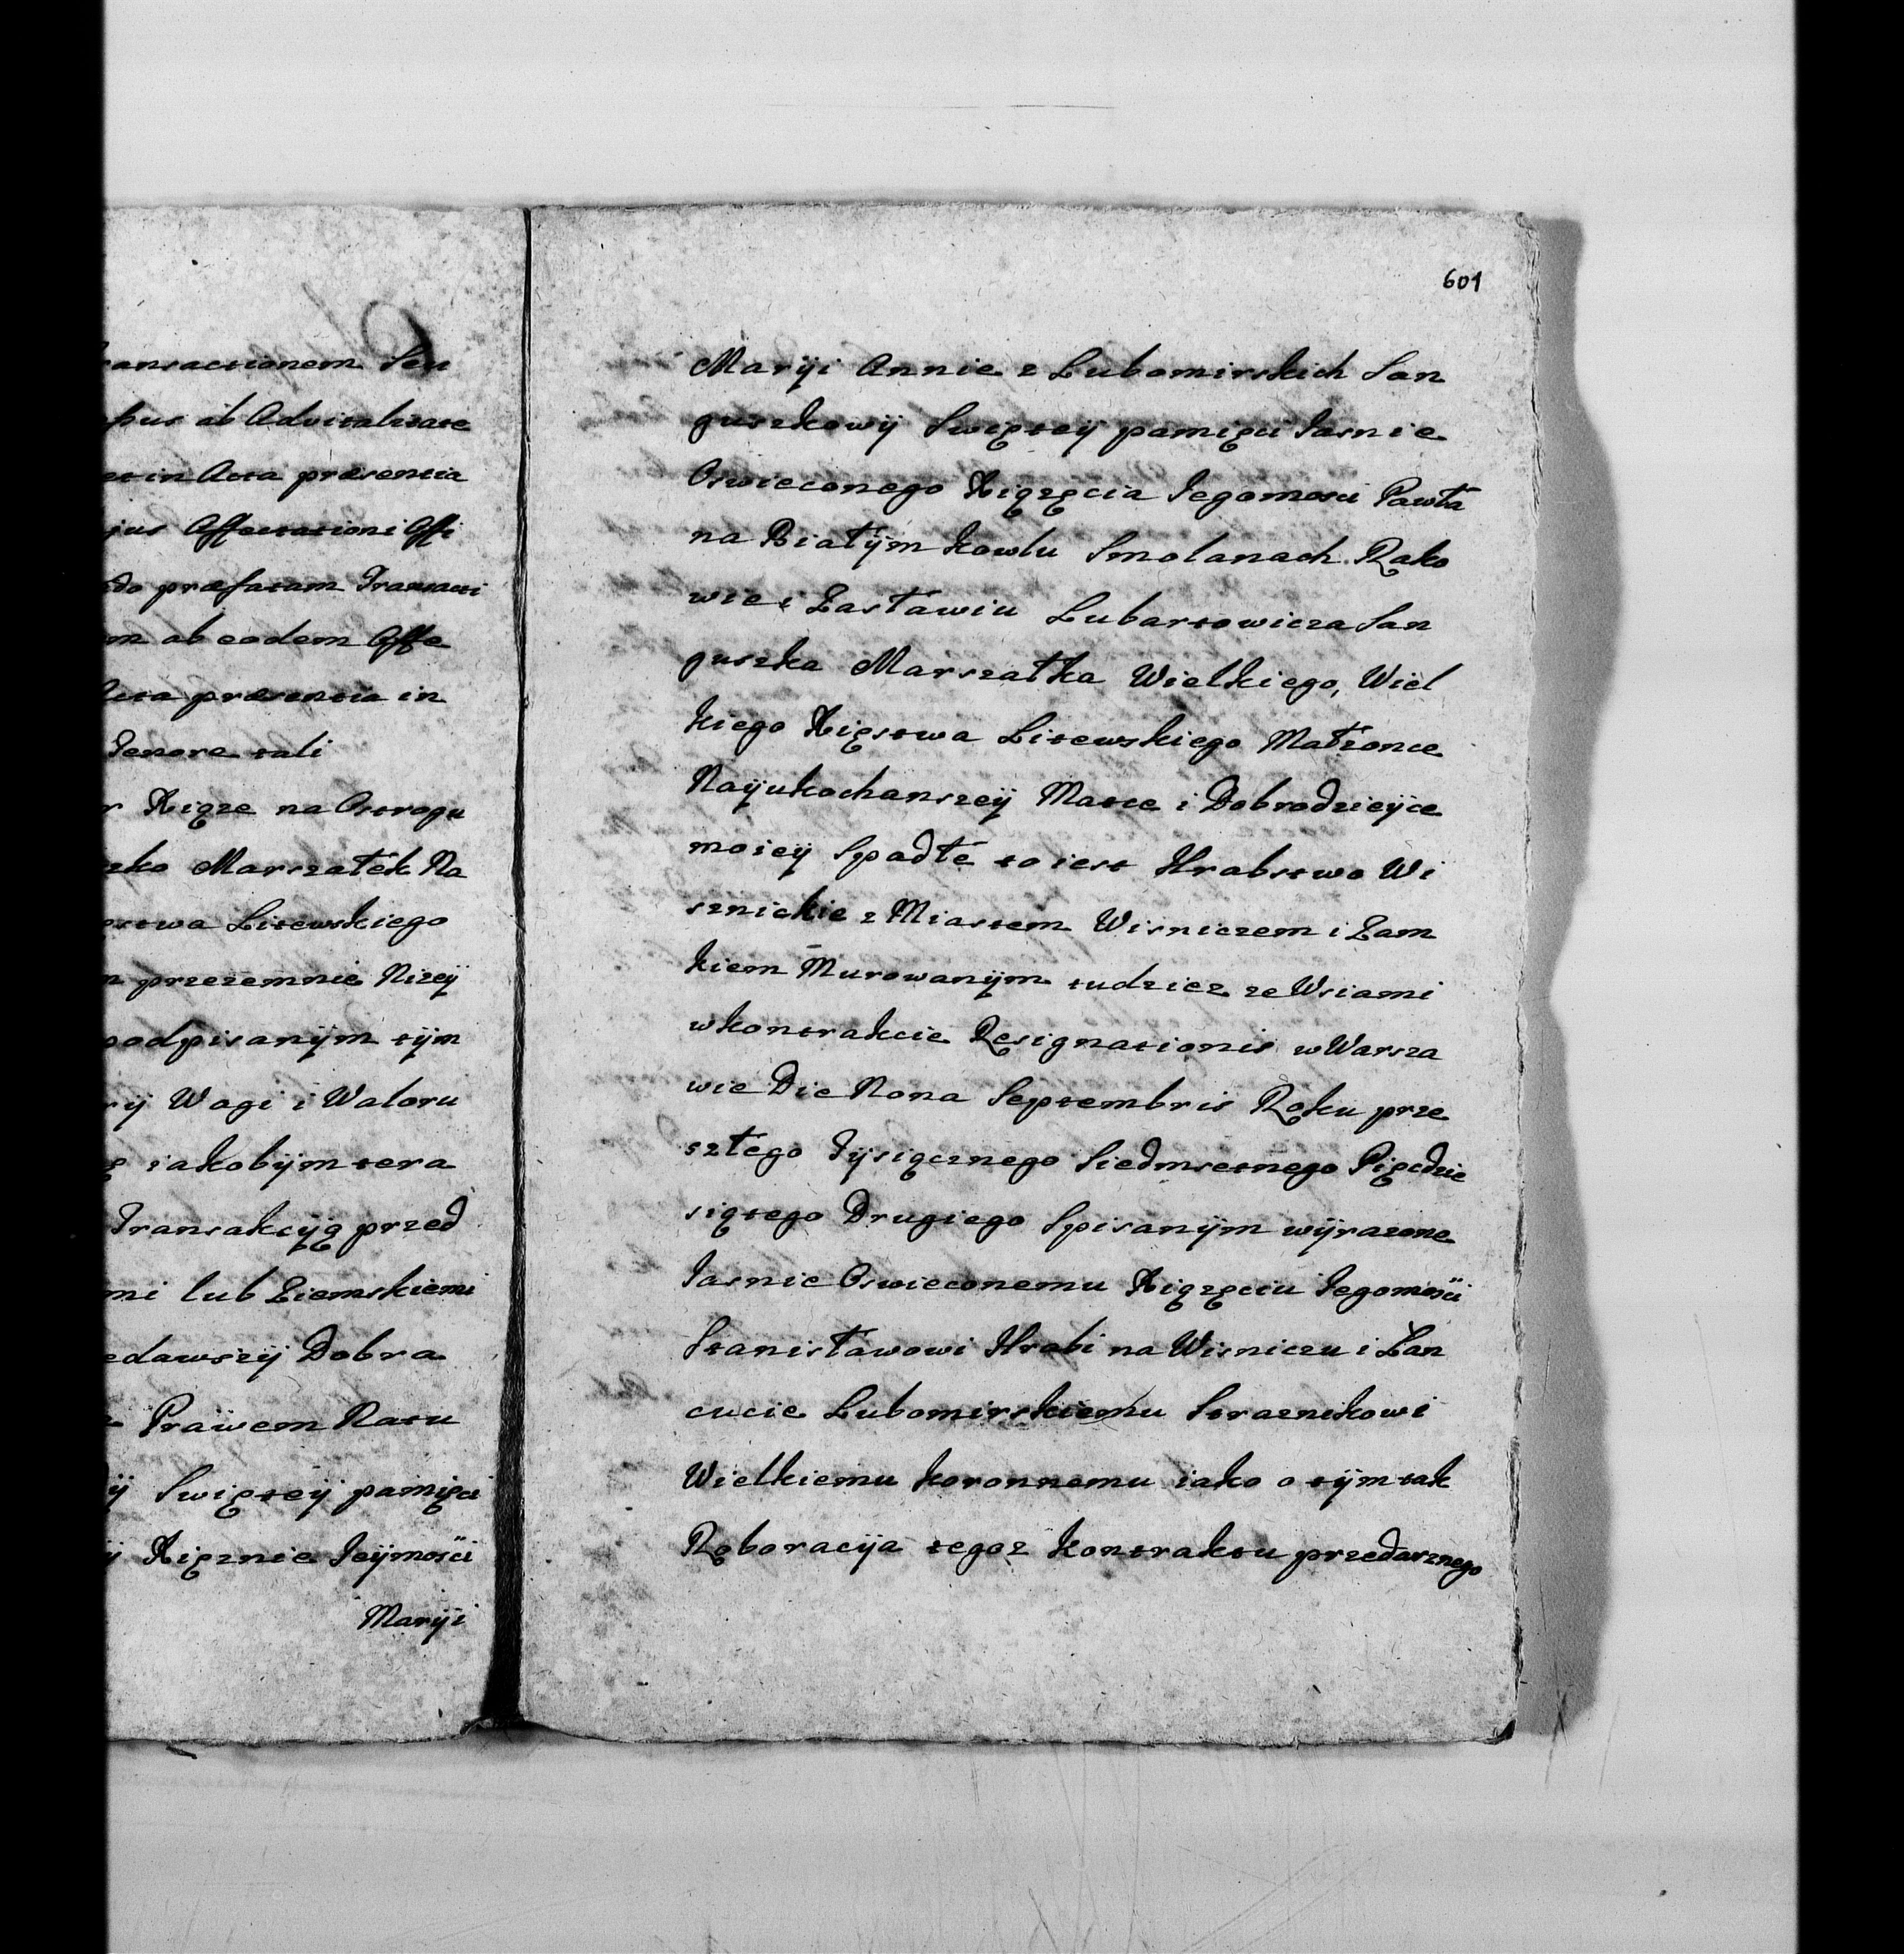 ransactionem Seu
pus ab Advitalitate
et in Acta præsentia
jus Affectationi Offi
do præfatam Transacti
m ab eodem Offe
Acta præsentia in
Tenore tali
r Xiąze na Ostrogu
zko Marszałek Na
stwa Litewskiego
m przezemnie Nizeÿ
podpisanÿm tÿm
rÿ Wagi i Waloru
ę iakobÿm tera
Transakcÿą przed
mi lub Ziemskiemi
edawszÿ Dobra
Prawem Natu
ÿ Swięteÿ pamięci
ÿ Xięznie Jeÿmości
Marÿi
601
Marÿi Annie z Lubomirskich San
guszkowÿ Swięteÿ pamięci Jasnie
Oswieconego Xiązęcia Jegomosci Pawła
na Białÿm Kowlu Smolanach Rako
wie i Zasławiu Lubartowicza San
guszka Marszałka Wielkiego, Wiel
kiego Xięstwa Litewskiego Małzonce
Naÿukochanszeÿ Matce i Dobrodzieÿce
moieÿ Spadłe to iest Hrabstwo Wi
sznickie z Miastem Wisniczem i Zam
kiem Murowanÿm tudziez ze Wsiami
w kontrakcie Resignationis w Warsza
wie Die Nona Septembris Roku prze
szłego Tÿsiącznego Siedmsetnego Pięcdzie
siątego Drugiego Spisanÿm wÿrazone
Jasnie Oswieconemu Xiązęciu Jegomości
Stanisławowi Hrabi na Wisniczu i Łan
cucie Lubomirskiemu Straznikowi
Wielkiemu Koronnemu iako o tÿm tak
Roboracÿa tegoz Kontraktu przedaznego